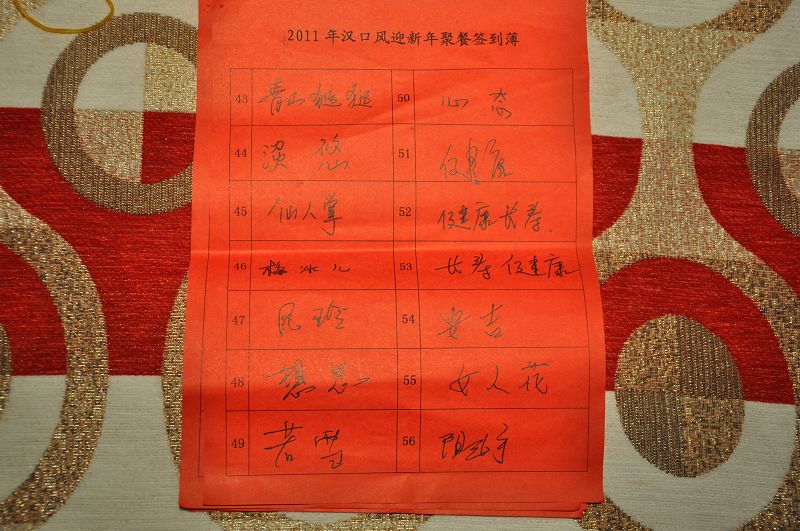 2011年汉口风迎新年聚餐签到薄
43 青山猩猩 50 心态
44 淡悠 51 健康
45 仙人掌 52 健康长寿
46 梅冰儿 53 长寿健康
47 风玲 54 安吉
48 慧思 55 女人花
49 若雪 56